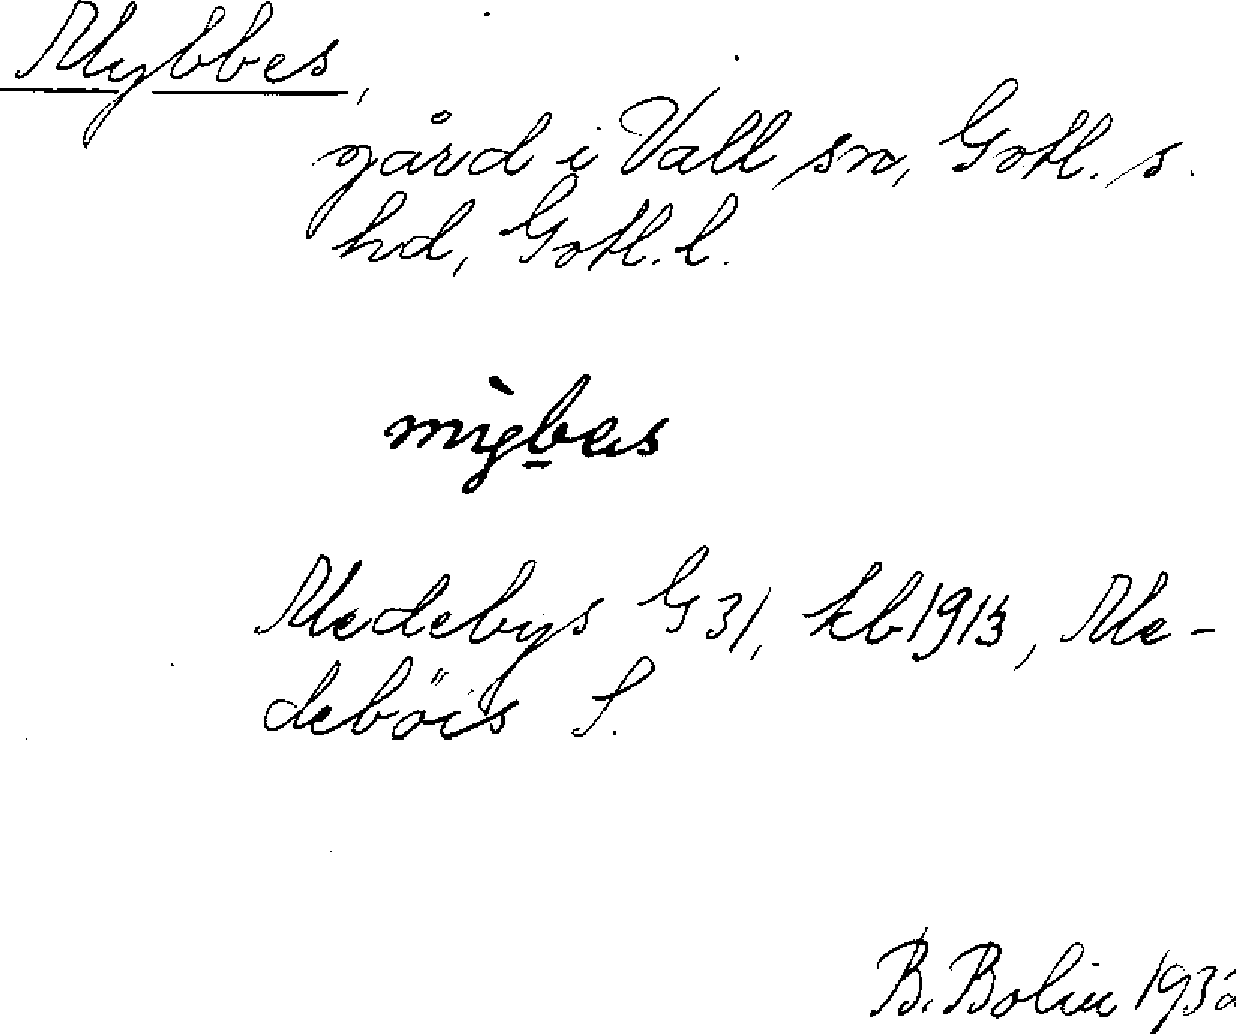 Mybbes,
gård i Vall sn, Gotl. s.
hd, Gotl. l.
Medebys G 31, kb 1913, Me-
deböis S.
B. Bolin 1932